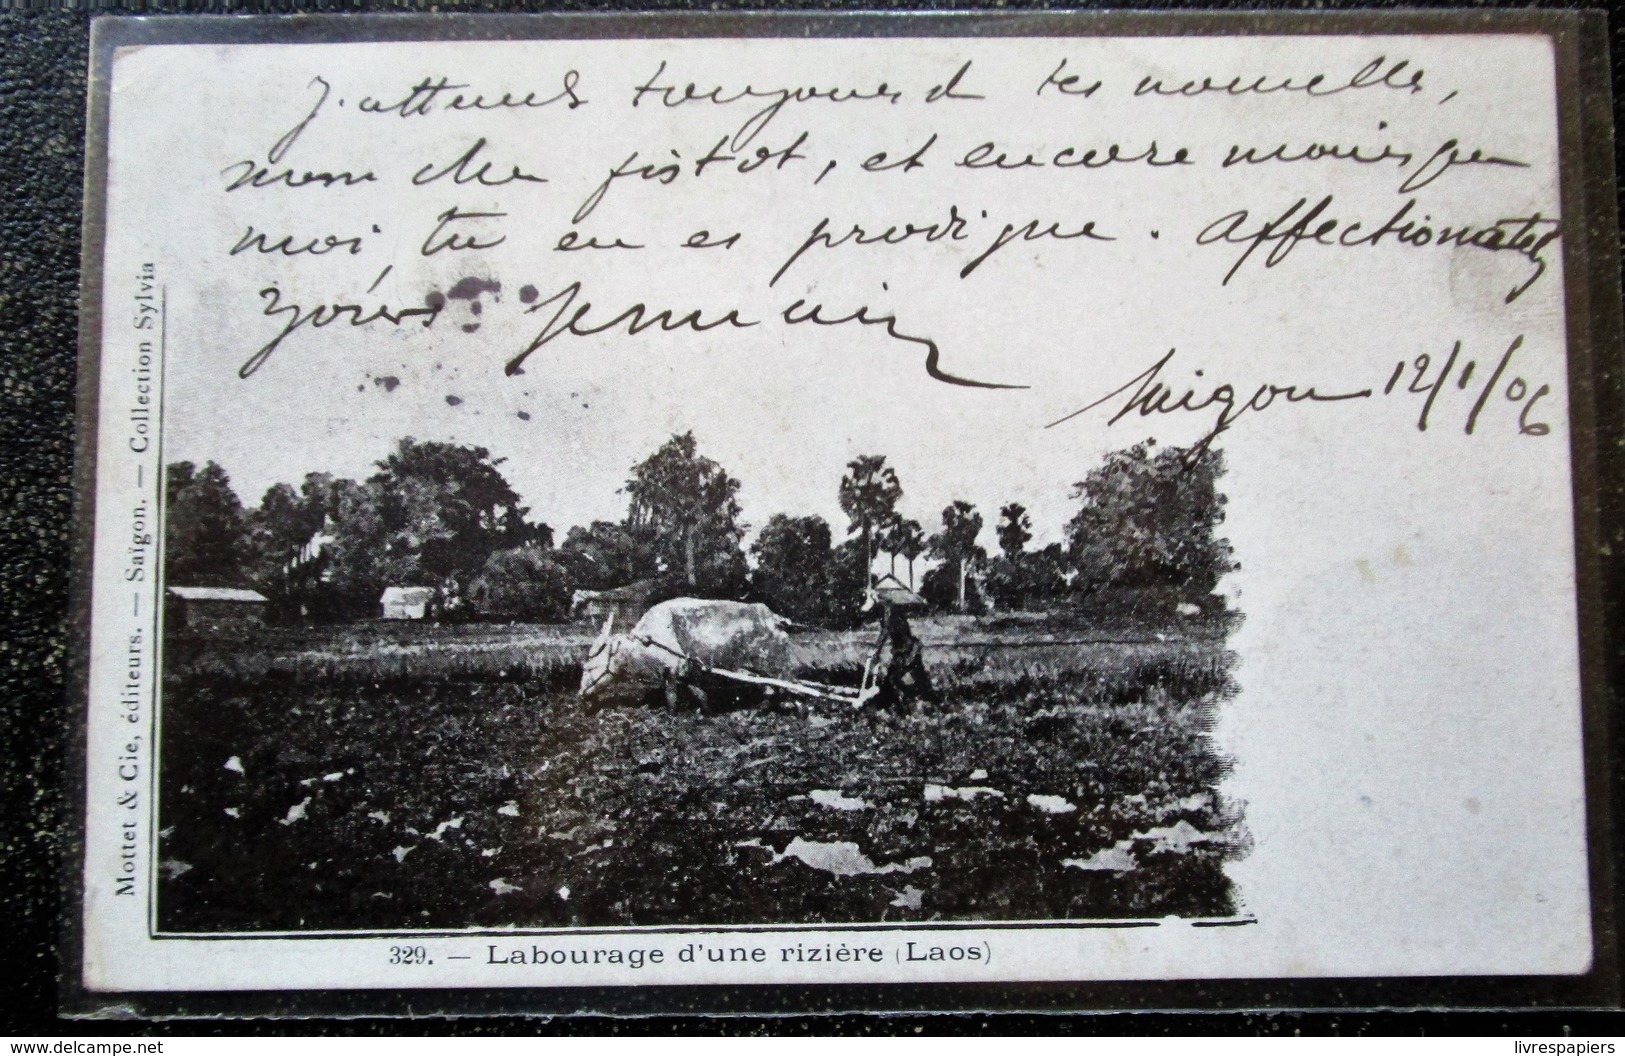 J'attends toujours de tes nouvelles,
mon cher fistot, et encore moins que
moi, tu en es prodigue. Affectionately
yours Germain
Saigon 12/1/06
Mottet & Cie, éditeurs. — Saïgon. — Collection Sylvia
329. — Labourage d'une rizière (Laos)
delcampe.net
livrespapiers